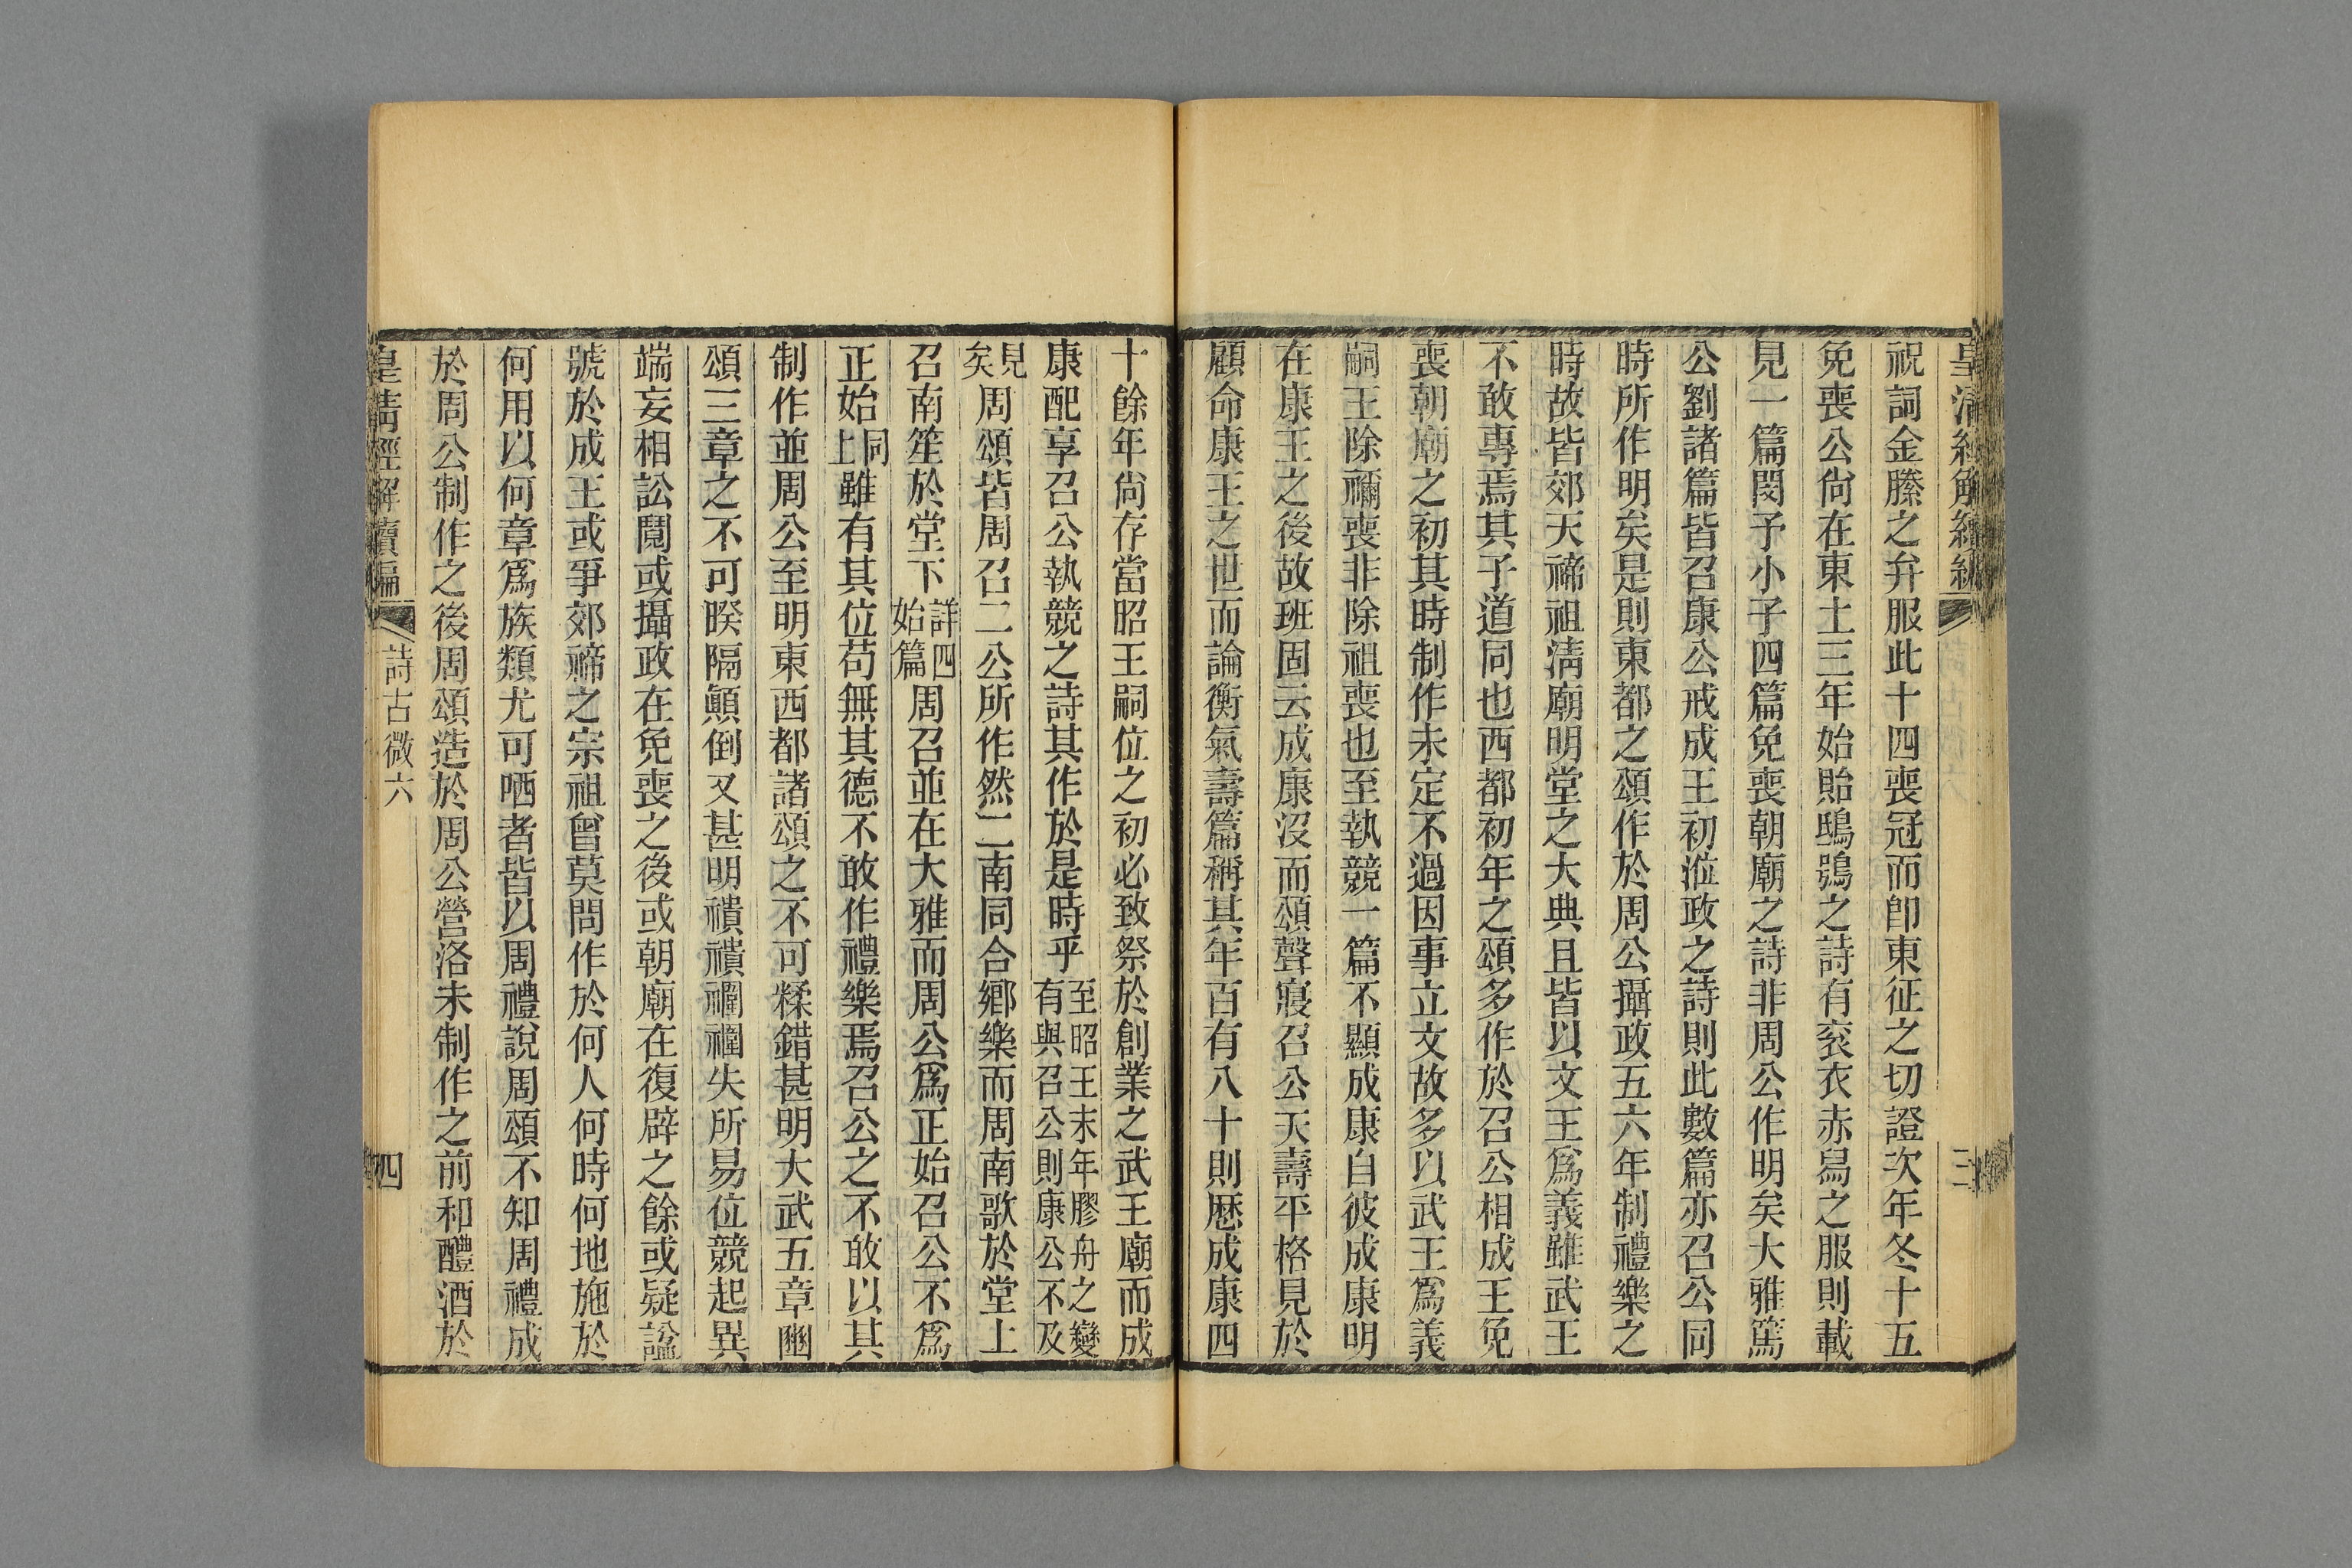 皇清經解續編
三
祝詞金縢之弁服此十四喪冠而卽東征之切證次年冬十五
免喪公尙在東土三年始貽鴟鴞之詩有衮衣赤舄之服則載
見一篇閔予小子四篇免喪朝廟之詩非周公作明矣大雅篤
公劉諸篇皆召康公戒成王初涖政之詩則此數篇亦召公同
時所作明矣是則東都之頌作於周公攝政五六年制禮樂之
時故皆郊天禘祖淸廟明堂之大典且皆以文王爲義雖武王
不敢專焉其子道同也西都初年之頌多作於召公相成王免
喪朝廟之初其時制作未定不過因事立文故多以武王爲義
嗣王除禰喪非除祖喪也至執競一篇不顯成康自彼成康明
在康王之後故班固云成康沒而頌聲寢召公天壽平格見於
顧命康王之世而論衡氣壽篇稱其年百有八十則歷成康四
十餘年尙存當昭王嗣位之初必致祭於創業之武王廟而成
康配享召公執競之詩其作於是時乎至昭王末年膠舟之變有與召公則康公不及
見矣周頌皆周召二公所作然二南同合鄉樂而周南歌於堂上
召南笙於堂下詳四始篇周召並在大雅而周公爲正始召公不爲
正始同上雖有其位苟無其德不敢作禮樂焉召公之不敢以其
制作並周公至明東西都諸頌之不可糅錯甚明大武五章豳
頌三章之不可暌隔顚倒又甚明禩禩禰禰失所易位競起異
端妄相訟鬩或攝政在免喪之後或朝廟在復辟之餘或疑諡
號於成王或爭郊禘之宗祖曾莫問作於何人何時何地施於
何用以何章爲族類尤可哂者皆以周禮說周頌不知周禮成
於周公制作之後周頌造於周公營洛未制作之前和醴酒於
皇淸經解續編
詩古微六
四